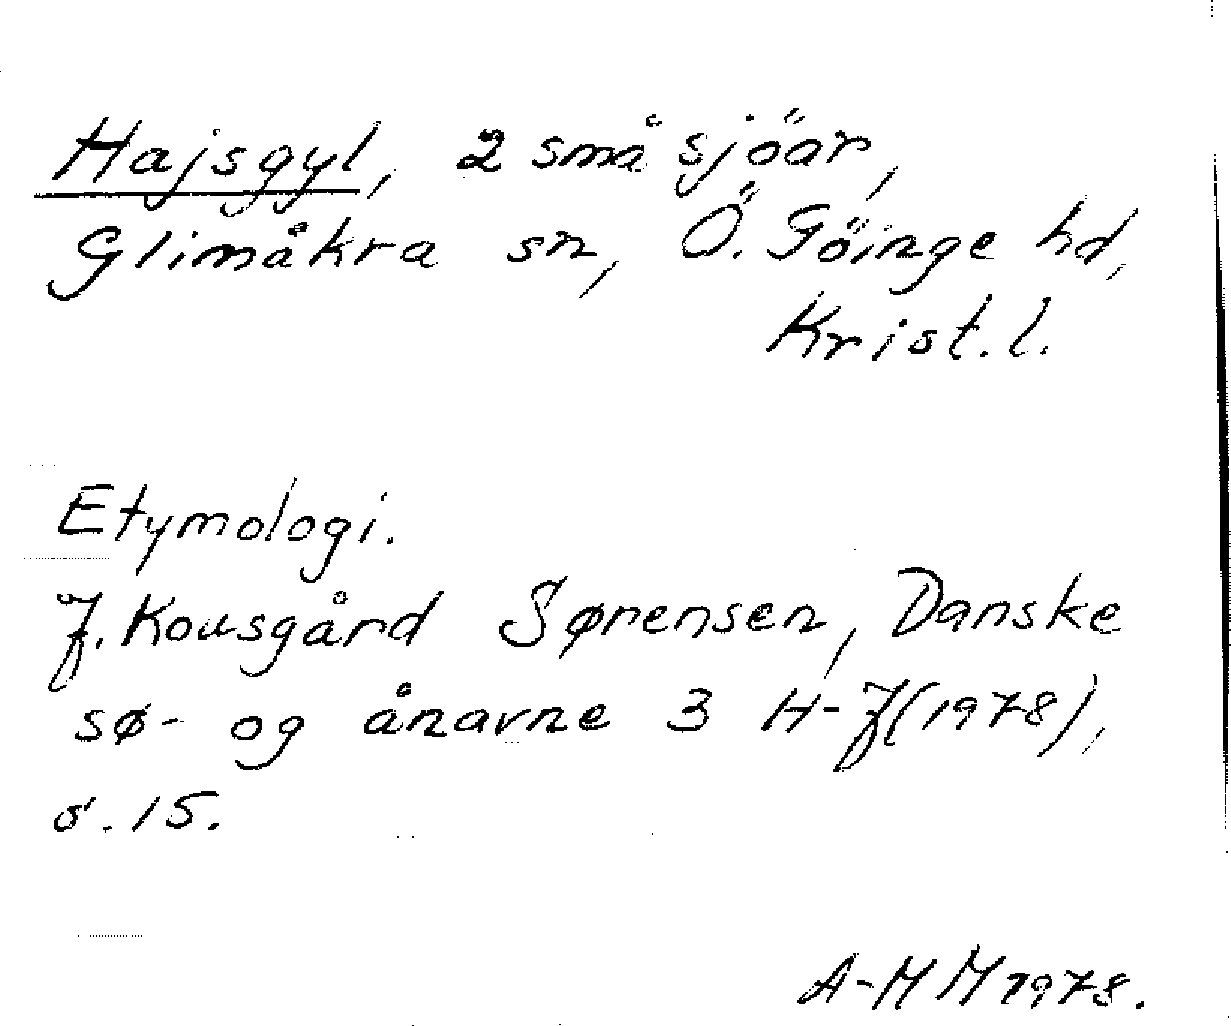 Hajsgyl, 2 små sjöar,
Glimåkra sn, Ö. Göinge hd,
Krist. l.
Etymologi.
J. Kousgård Sørensen, Danske
sø- og ånavne 3 H-J (1978),
s. 15.
A-MM 1978.